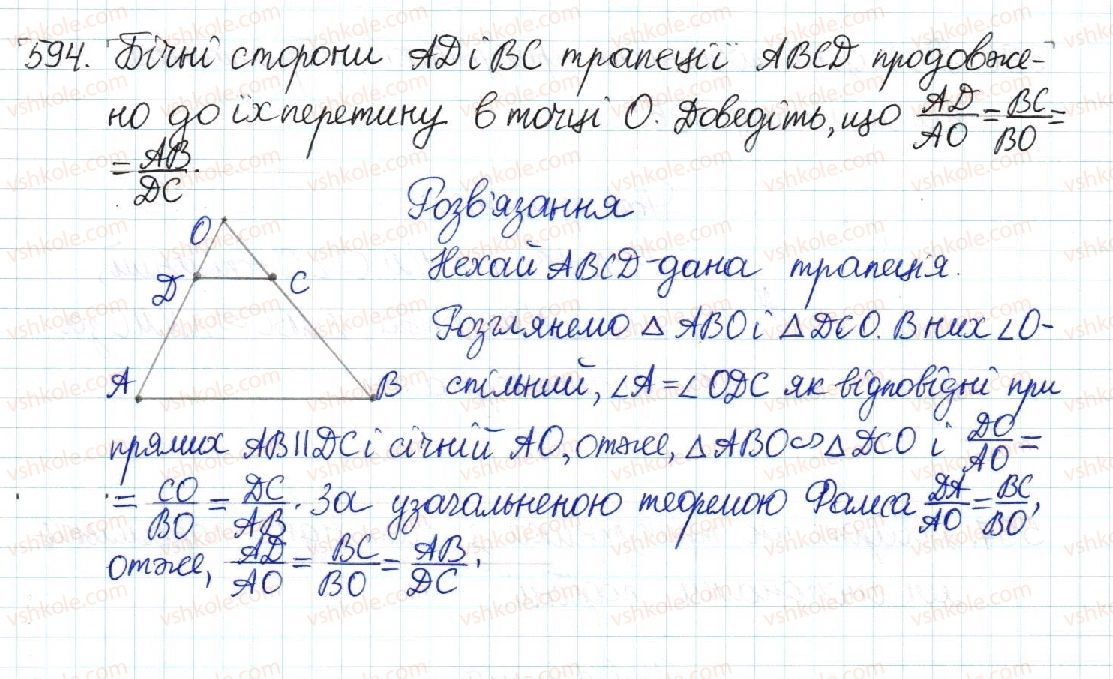 594. Бічні сторони AD і BC трапеції ABCD продовже-
но до їх перетину в точці O. Доведіть, що AD/AO = BC/BO =
= AB/DC.
Розв'язання
Нехай ABCD - дана трапеція.
Розглянемо △ ABO і △ DCO. В них ∠O -
спільний, ∠A = ∠ODC як відповідні при
прямих AB || DC і січній AO, отже, △ABO ∽ △DCO і DO/AO =
= CO/BO = DC/AB. За узагальненою теоремою Фалеса DA/AO = BC/BO,
отже, AD/AO = BC/BO = AB/DC.
O
D
C
A
B
vshkole.com